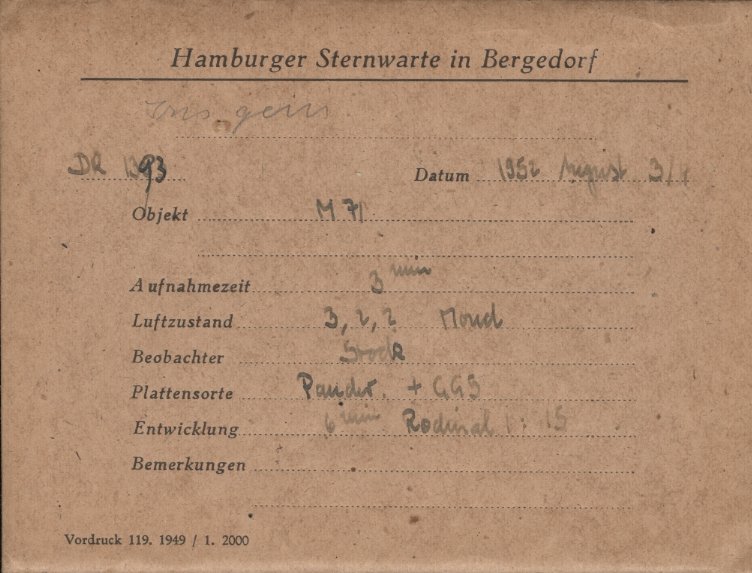 Hamburger Sternwarte in Bergedorf
DR 1393 Datum 1952 August 3/4
Objekt M 71
Aufnahmezeit 3 min
Luftzustand 3, 2, 2 Mond
Beobachter Stock
Plattensorte + GG5
Entwicklung 6 min Rodinal 1 : 15
Bemerkungen
Vordruck 119. 1949 / 1. 2000